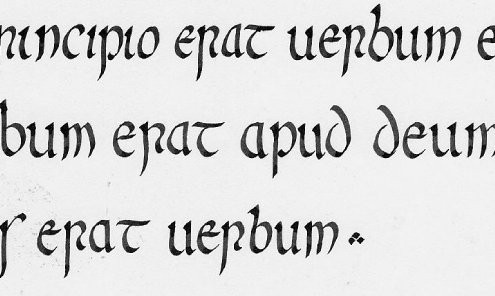 nincipio erat uerbum e
bum erat apud deum
s erat uerbum